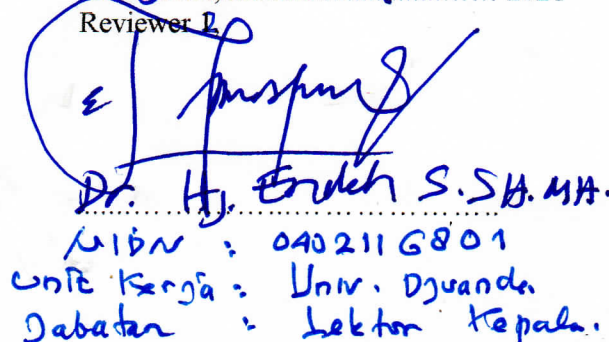 Reviewer 1,
Dr. Hj. Endeh S. SH. MH.
NIDN : 0402116801
Unit Kerja : Univ. Djuanda
Jabatan : Lektor Kepala.